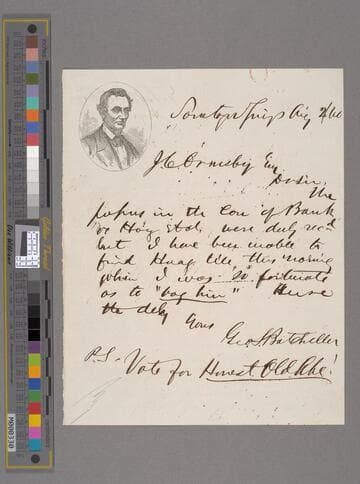 Saratoga Springs Aug 2/60
J. C. Ormsby Esq
Dr Sir
The
papers in the Case of Bank
vs Hoag et al, were duly recd
but I have been unable to
find Hoag till this morning
when I was "so" fortunate
as to "bag him" Hence
the delay
Yours
Geo S Batcheller
P.S. Vote for Honest Old Abe!